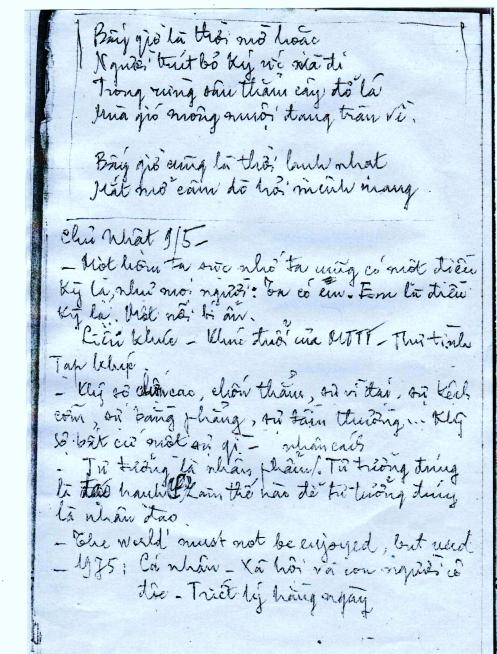 Bây giờ là thời mơ hoặc
Người thiết bỏ ký ức mà đi
Trong rừng sâu thẳm cây đổ lá
Mùa gió mông muội đang tràn về.
Bây giờ cũng là thời lanh nhạt
Mắt mở câm dò hỏi mênh mang
Chủ Nhật 9/5 -
- Một hôm ta sực nhớ ta cũng có một điều
kỳ lạ, như mọi người: Ta có em. Em là điều
kỳ lạ. Một nỗi bí ẩn.
Liễu khúc - Khúc đuổi của MTTT - Thư tình
Tạp khúc
- Không sợ cao, thẳm, sự vĩ đại, sự kệch
cỡm, sự bằng phẳng, sự tầm thường... Không
sợ bất cứ một sự gì - nhân cách
- Tư tưởng là nhân phẩm. Tư tưởng đúng
là đạo hạnh. Làm thế nào để tư tưởng đúng
là nhân đạo.
- The world must not be enjoyed, but used
- 1975: Cá nhân - Xã hội và con người cô
độc - Triết lý hàng ngày